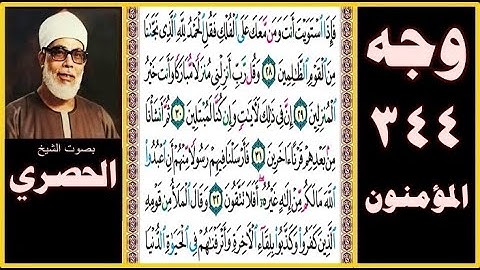 وجه
٣٤٤
المؤمنون
فَإِذَا ٱسْتَوَيْتَ أَنتَ وَمَن مَّعَكَ عَلَى ٱلْفُلْكِ فَقُلِ ٱلْحَمْدُ لِلَّهِ ٱلَّذِى نَجَّىٰنَا
مِنَ ٱلْقَوْمِ ٱلظَّٰلِمِينَ ٢٨ وَقُل رَّبِّ أَنزِلْنِى مُنزَلًا مُّبَارَكًا وَأَنتَ خَيْرُ
ٱلْمُنزِلِينَ ٢٩ إِنَّ فِى ذَٰلِكَ لَءَايَٰتٍ وَإِن كُنَّا لَمُبْتَلِينَ ٣٠ ثُمَّ أَنشَأْنَا
مِنۢ بَعْدِهِمْ قَرْنًا ءَاخَرِينَ ٣١ فَأَرْسَلْنَا فِيهِمْ رَسُولًا مِّنْهُمْ أَنِ ٱعْبُدُوا۟
ٱللَّهَ مَا لَكُم مِّنْ إِلَٰهٍ غَيْرُهُۥٓ أَفَلَا تَتَّقُونَ ٣٢ وَقَالَ ٱلْمَلَأُ مِن قَوْمِهِ
ٱلَّذِينَ كَفَرُوا۟ وَكَذَّبُوا۟ بِلِقَآءِ ٱلْءَاخِرَةِ وَأَتْرَفْنَٰهُمْ فِى ٱلْحَيَوٰةِ ٱلدُّنْيَا
بصوت الشيخ
الحصري